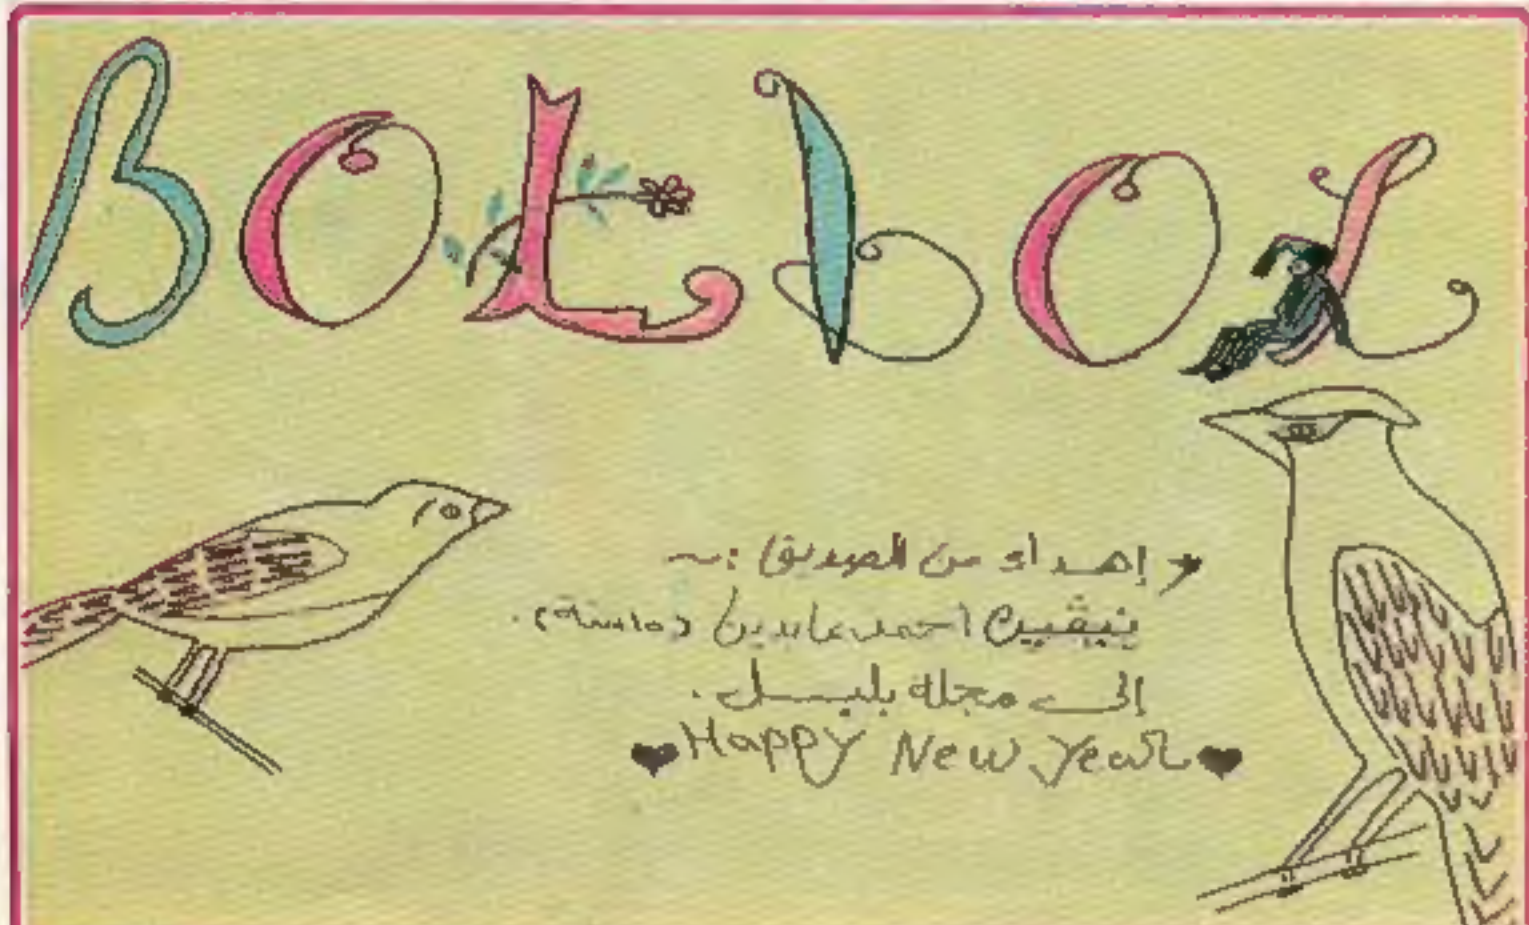 BOLBOL
إهداء من الصديق :~
نيڤين احمد عابدين
إلى مجلة بلبل .
Happy New Year